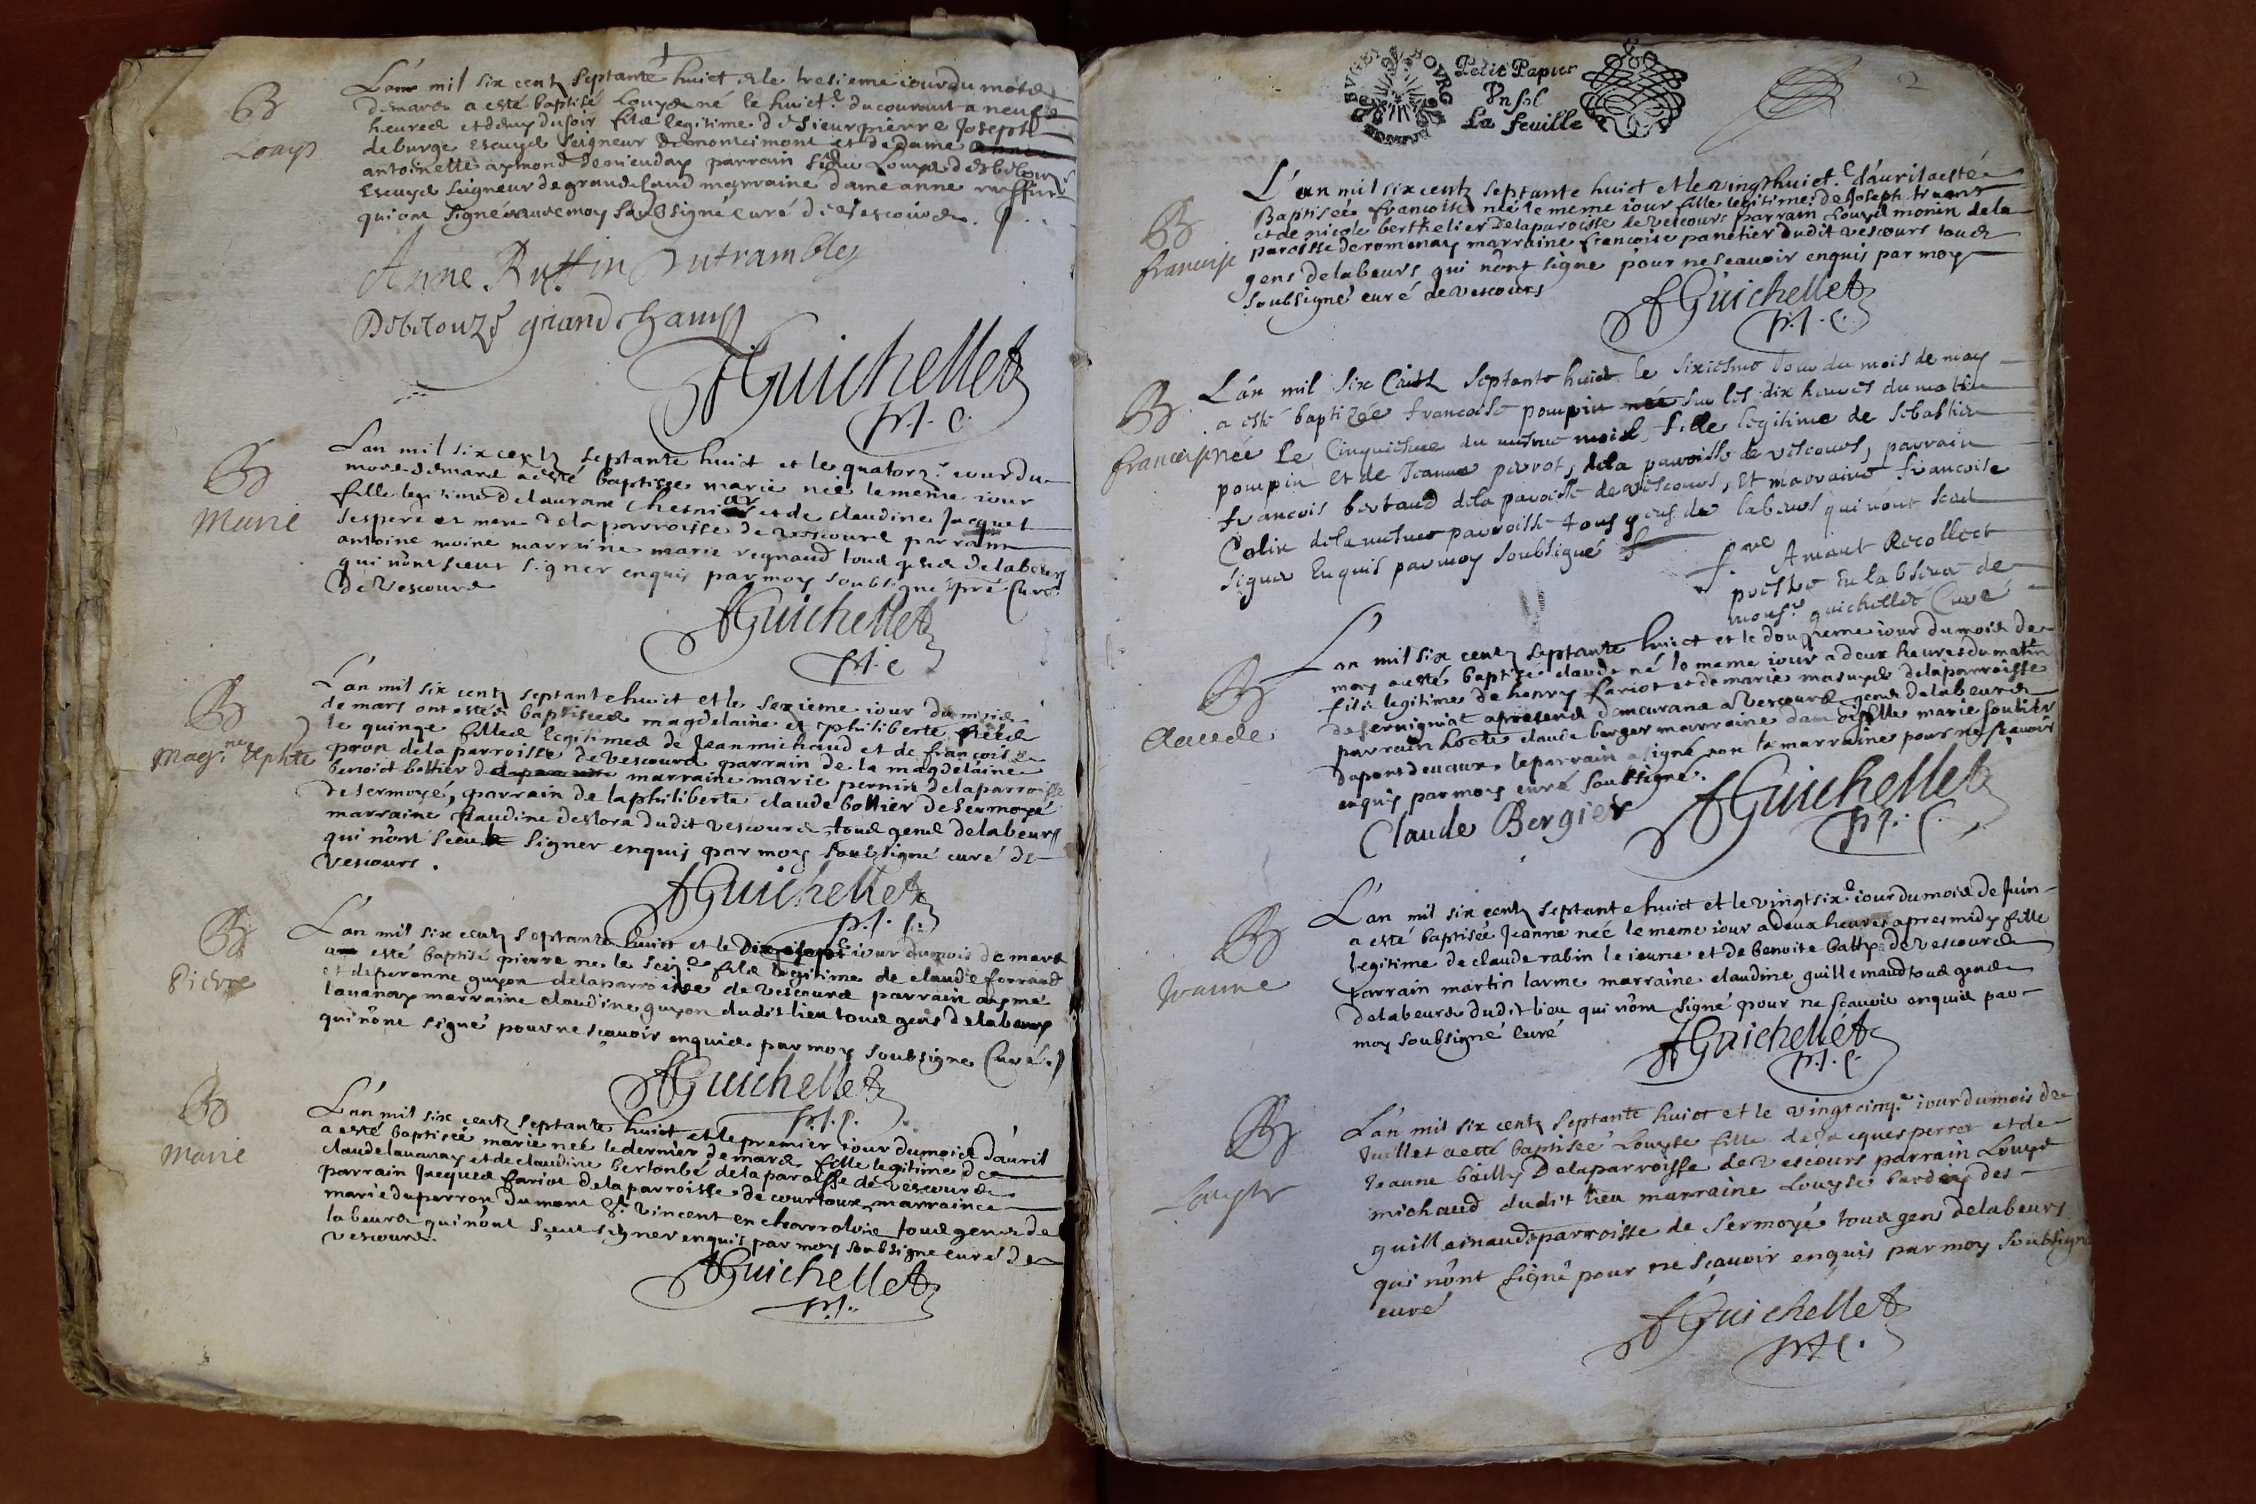 B
Louys
L'an mil six centz septante huict & le tresieme iour du mois
de mars a esté baptisé Louys né le huict.e du courant a neuf
heures et demy du soir fils legitime de Sieur pierre Joseph
de burge Escuyer Seigneur de montsimont et de dame
antoinette aymond parrain Louys
Escuyer Seigneur de grandchand marraine dame anne ruffin
qui ont signé avec moy soubsigné curé de vescours.
Anne Ruffin Dutrambley
grandchamp
Guichellet
B
Marie
L'an mil six centz septante huict et le quatorz.e iour du
mois de mars a esté baptisée marie née le meme iour
fille legitime de laurans Chesni et de claudine Jacquet
ses pere et mere de la parroisse de vescours parrain
antoine moine marraine marie reynaud tous gens de labeurs
qui n'ont sceut signer enquis par moy soubsigné p.re Curé
De Vescours
Guichellet
B
Mag.ne & phte
L'an mil six centz septante huict et le sexieme iour du mois
de mars ont estés baptisées magdelaine et philiberte nées
le quinze filles legitimes de Jean michaud et de francoise
pron de la parroisse de Vescours parrain de la magdelaine
benoict bottier marraine marie pernin de la parroisse
de sermoyé, parrain de la philiberte claude bottier de sermoyé
marraine claudine deslora dudit vescours, tous gens de labeurs
qui n'ont sceu signer enquis par moy soubsigné curé de
vescours.
Guichellet
B
Pierre
L'an mil six centz septante huict et le dix sept.e iour du mois de mars
a esté baptisé pierre né le seiz.e fils legitime de claude ferrand
et de peronne guyon de la parroisse de vescours parrain aymé
lavanay marraine claudine guyon dudit lieu tous gens de labeurs
qui n'ont signé pour ne scavoir enquis par moy soubsigné Curé.
Guichellet
B
Marie
L'an mil six centz septante huict et le premier iour du mois d'auril
a esté baptisée marie née le dernier de mars fille legitime de
claude lavanay et de claudine bertonbé de la paroisse de vescours
parrain Jacques fariot de la parroisse de courtoux marraine
marie duperron du mont St. vincent en charrolois tous gens de
labeurs qui n'ont sceut signer enquis par moy soubsigné curé de
vescours.
Guichellet
BVGEY BOVRG
Petit Papier
Vn sol
La feuille
2
B
francoise
L'an mil six centz septante huict et le vingt huict.e d'auril a esté
Baptisée francoise née le meme iour fille legitime de Joseph truant
et de nicole berthelier de la paroisse de vescours parrain Louys monin de la
paroisse de romenay marraine francoise panetier dudit vescours tous
gens de labeurs qui n'ont signé pour ne scavoir enquis par moy
soubsigné curé de vescours
Guichellet
B
francoise
L'an mil six centz septante huict le sixiesme Jour du mois de may
a esté baptizée francoise pompin sur les dix heures du matin
née le Cinquiesme du mesme mois, fille legitime de sebastien
pompin Et de Jeanne perrot, de la parroisse de vescours, parrain
francois bertaud de la paroisse de vescours, Et marraine francoise
Colin de la mesme parroisse tous gens de labeurs qui n'ont sceu
signer Enquis par moy soubsigné
f. Amant Recollect
prestre En labsence de
mons.r guichellet Curé
B
Claude
L'an mil six centz septante huict et le douzieme iour du mois de
may a esté baptizé claude né le meme iour a deux heures du matin
fils legitime de henry fariot et de marie masuyer de la parroisse
de seruigniat a present demeurans a Vescours gens de labeurs
parrain claude berger marraine damoiselle marie
dupont de vaux, le parrain a signé non la marraine pour ne scavoir
enquis par moy curé soubsigné.
Claude Bergier
Guichellet
B
Jeanne
L'an mil six centz septante huict et le vingt six.e iour du mois de Juin
a esté baptisée Jeanne née le meme iour a deux heures apres midy fille
legitime de claude rabin le ieune et de benoite batty de vescours
parrain martin larme marraine claudine guillemaud tous gens
de labeurs dudit lieu qui n'ont signé pour ne scavoir enquis par
moy soubsigné Curé
Guichellet
B
Louyse
L'an mil six centz septante huict et le vingt cinq.e iour du mois de
Juillet a esté baptisée Louyse fille de Jacques perrot et de
Jeanne bailly De la parroisse de vescours parrain Louys
michaud dudit lieu marraine Louyse des
guillemauds parroisse de sermoyé tous gens de labeurs
qui n'ont signé pour ne scavoir enquis par moy soubsigné
curé
Guichellet